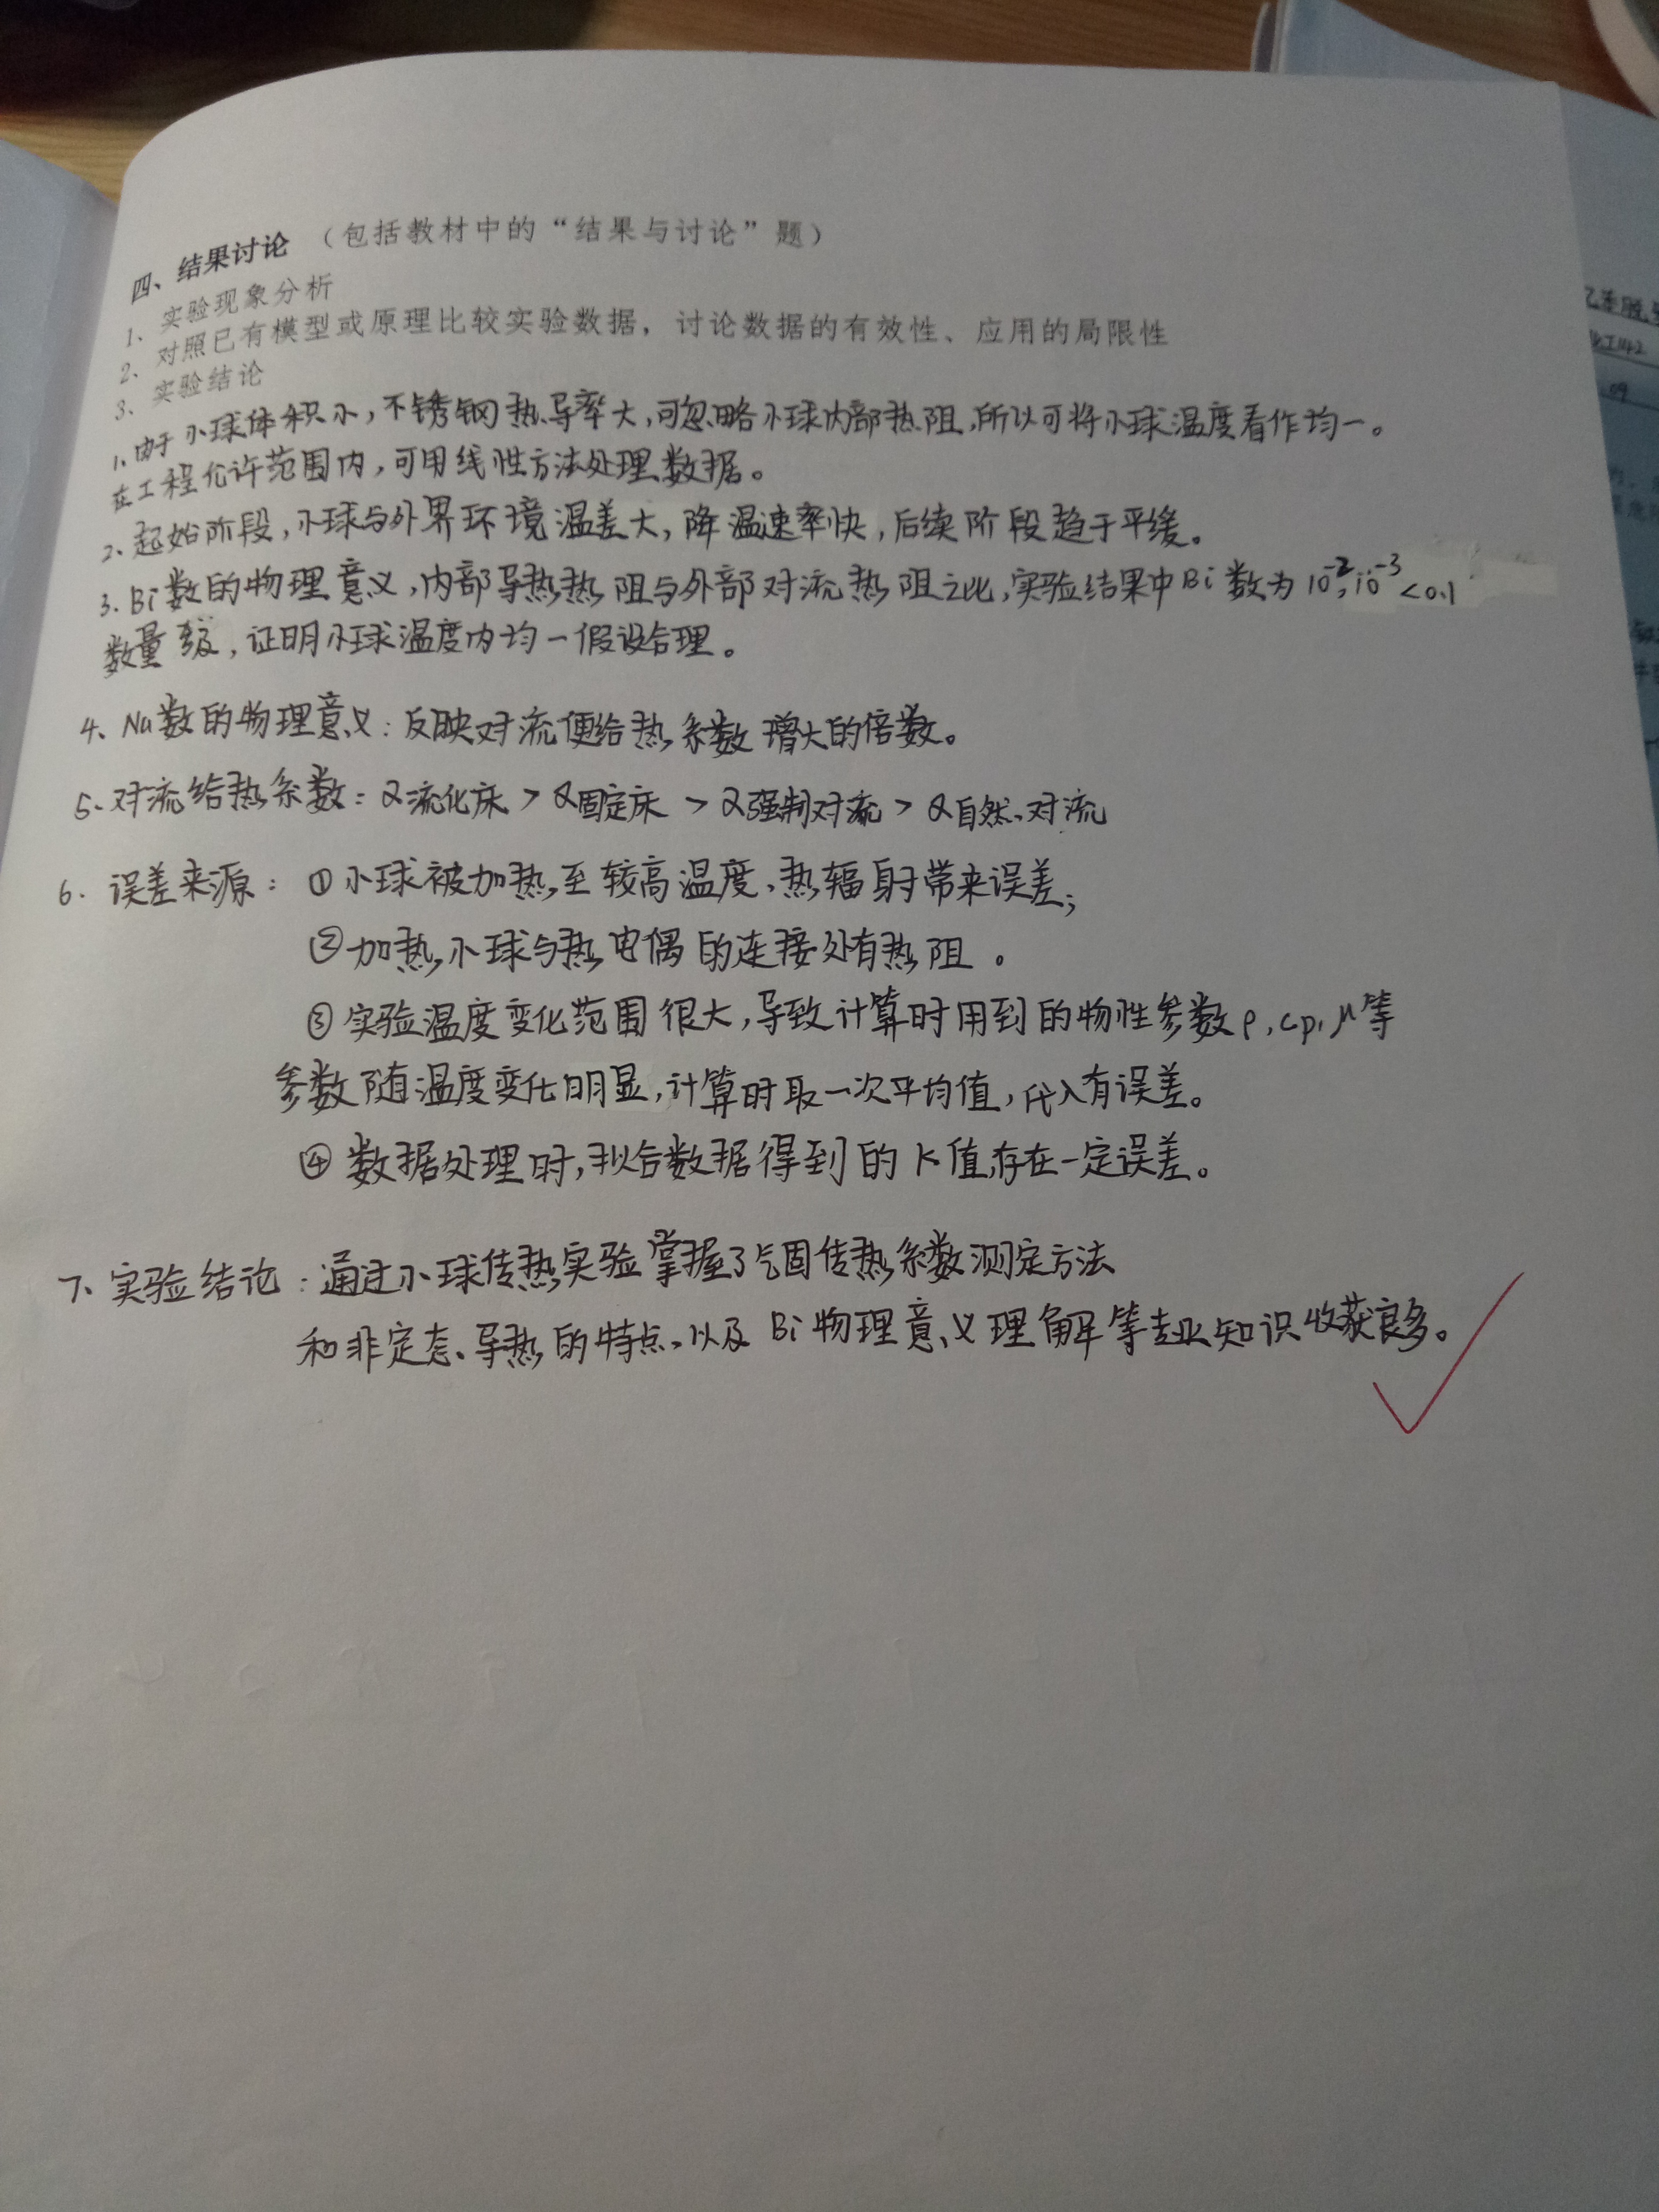 四、结果讨论 （包括教材中的“结果与讨论”题）
1、实验现象分析
2、对照已有模型或原理比较实验数据，讨论数据的有效性、应用的局限性
3、实验结论
1、由于小球体积小，不锈钢热导率大，可忽略小球内部热阻，所以可将小球温度看作均一。
在工程允许范围内，可用线性方法处理数据。
2、起始阶段，小球与外界环境温差大，降温速率快，后续阶段趋于平缓。
3. Bi数的物理意义，内部导热热阻与外部对流热阻之比，实验结果中Bi数为10⁻²,10⁻³<0.1
数量级，证明小球温度内均一假设合理。
4、Nu数的物理意义：反映对流使给热系数增大的倍数。
5、对流给热系数：α流化床 > α固定床 > α强制对流 > α自然对流
6. 误差来源：①小球被加热至较高温度，热辐射带来误差；
②加热小球与热电偶的连接处有热阻。
③实验温度变化范围很大，导致计算时用到的物性参数ρ,cp,μ等
参数随温度变化明显，计算时取一次平均值，代入有误差。
④数据处理时，拟合数据得到的k值存在一定误差。
7、实验结论：通过小球传热实验掌握了气固传热系数测定方法
和非定态导热的特点，以及Bi物理意义理解等专业知识收获良多。
乙苯脱
09